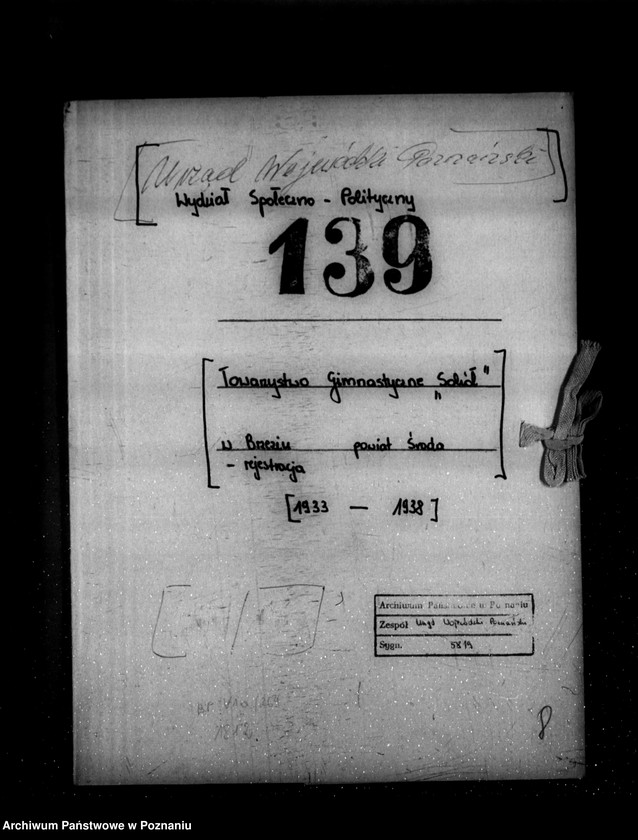 [Urząd Wojewódzki Poznański]
Wydział Społeczno - Polityczny
139
[Towarzystwo Gimnastyczne „Sokół"
w Brzeziu powiat Środa
- rejestracja]
[1933 — 1938]
Archiwum Państwowe w Poznaniu
Zespół Urząd Wojewódzki Poznański
Sygn. 5819
8
Archiwum Państwowe w Poznaniu